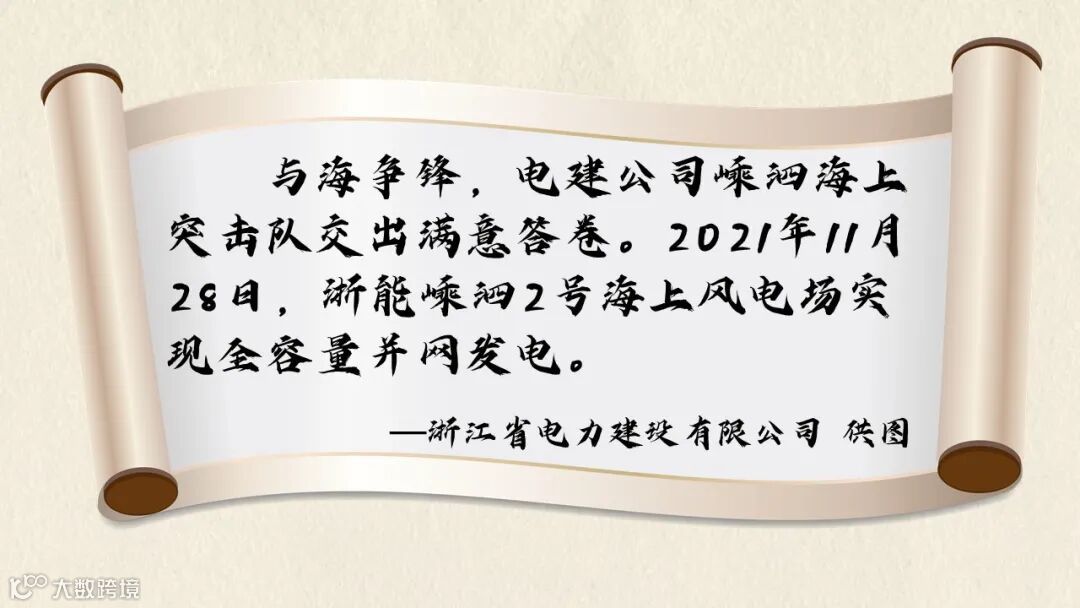 与海争锋，电建公司嵊泗海上
突击队交出满意答卷。2021年11月
28日，浙能嵊泗2号海上风电场实
现全容量并网发电。
—浙江省电力建设有限公司 供图
大数跨境